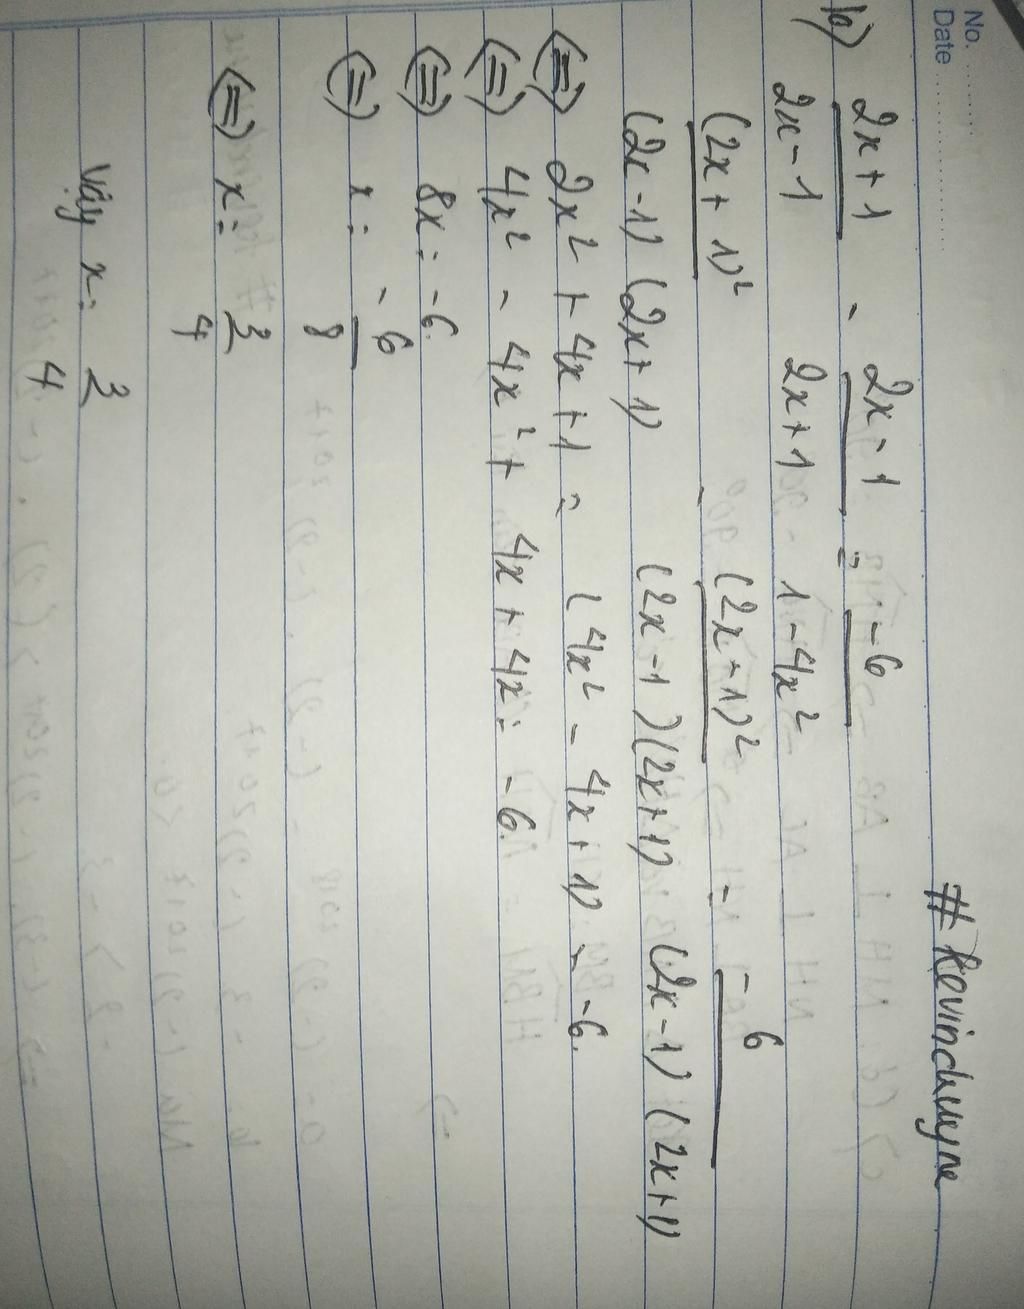 No.
Date
# Kevinchuyne
b) (2x+1)/(2x-1) - (2x-1)/(2x+1) = -6/(1-4x²)
(2x+1)²/((2x-1)(2x+1)) - (2x-1)²/((2x-1)(2x+1)) = -6/((2x-1)(2x+1))
(=) 2x² + 4x + 1 = (4x² - 4x + 1) = -6.
(=) 4x² - 4x² + 4x + 4x = -6.
(=) 8x = -6.
(=) x = -6/8
(=) x = 3/4
Vậy x = 3/4